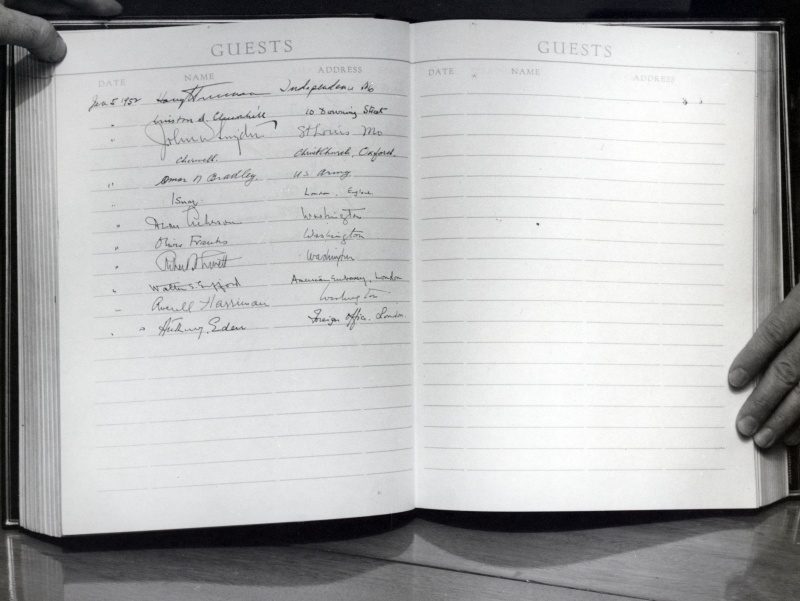 GUESTS
DATE NAME ADDRESS
Jan 5 1952 Harry S Truman Independence Mo
" Winston S. Churchill 10 Downing Street
" John W Snyder St Louis Mo
Cherwell Christ Church, Oxford.
" Omar N Bradley U.S. Army
" Ismay London, England
" Dean Acheson Washington
" Oliver Franks Washington
" Robert A Lovett Washington
" Walter S Gifford American Embassy, London
" Averell Harriman Washington
" " Anthony Eden Foreign Office. London.
GUESTS
DATE NAME ADDRESS